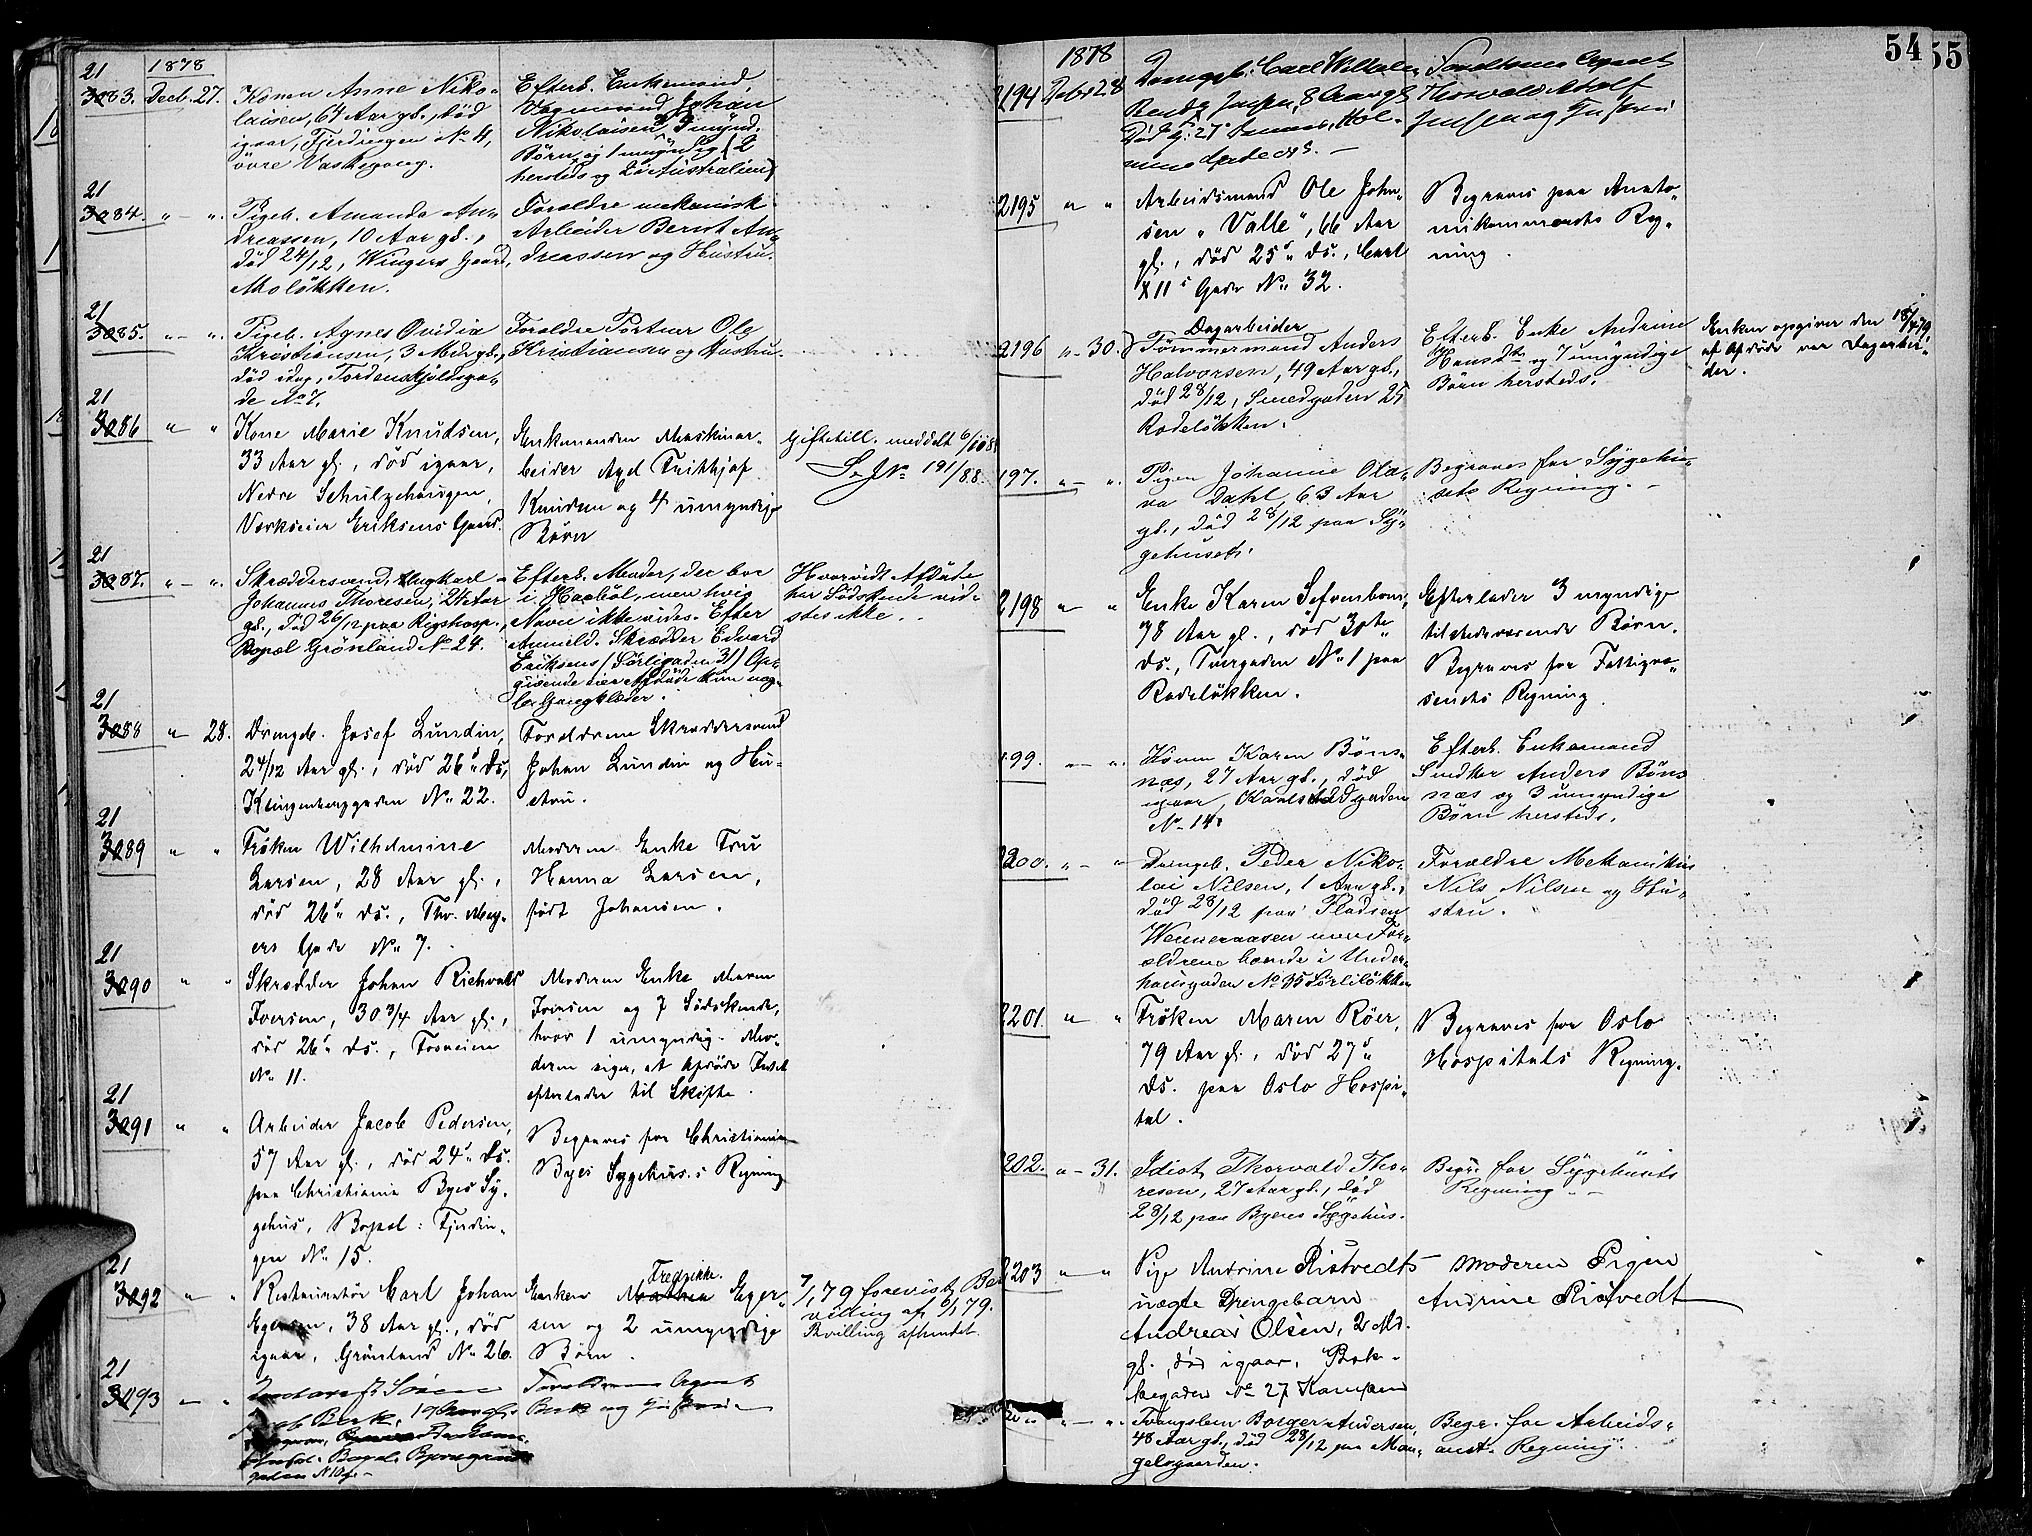 1878
21
3083. Decb. 27. Konen Anne Niko-
laisen, 64 Aar gl., död
igaar, Fjerdingen No 4,
övre Vaskegang.
Efterl. Enkemand,
Vægmand Johan
Nikolaisen, 3 mynd.
Børn, og 1 umyndig (2
hersteds og 2 i Australien)
21
3084. " - ". Pigeb. Amanda An-
dreassen, 10 Aar gl.,
död 24/12, Wingers Gaard,
Moløkken.
Forældre mekanisk
Arbeider Bernt An-
dreassen og Hustru.
21
3085. " - ". Pigeb. Agnes Ovidia
Kristiansen, 3 Mdr gl.,
död idag, Tordenskjoldsga-
de No 7.
Forældre Portner Ole
Kristiansen og Hustru.
21
3086 " " Kone Marie Knudsen,
33 Aar gl., död igaar,
Nedre Schulzehaugen,
Værkseier Eriksens Gaard.
Enkemanden Maskinar-
beider Axel Frithjof
Knudsen og 4 umyndige
Børn
Giftetill. meddelt 6/10 8
Se JNo 191/88.
21
3087. " - ". Skræddersvend Ung Karl
Johannes Thoresen, 24 Aar
gl., död 26/12 paa Rigshosp.,
Bopæl Grønland No 24.
Efterl. Moder, der bor
i Hacböl, men hvis
Navn ikke vides. Efter
Anmeld. Skrædder Edvard
Eriksens (Sörligaden 31) Op-
givende eier Afdöde kun nog-
le Gangklæder.
Hvorvidt Afdöde
har Södskende vid-
stes ikke.
21
3088 " 28. Drengeb. Josef Lundin,
2 4/12 Aar gl., död 26de Ds,
Klingenberggaden No 22.
Forældrene Skræddersvend
Johan Lundin og Hu-
stru.
21
3089 " " Frøken Wilhelmine
Larsen, 28 Aar gl.,
död 26de ds., Thv. Mey-
ers Gade No 7.
Moderen Enke Fru
Hanna Larsen,
født Johansen.
21
3090 " " Skrædder Johan Richvald
Iversen, 30 3/4 Aar gl.,
död 26de ds., Fosveien
No 11.
Moderen Enke Maren
Iversen og 7 Södskende,
hvor 1 umyndig. Mo-
deren siger, at Afdöde Intet
efterlader til Skifte.
21
3091 " " Arbeider Jacob Pedersen,
57 Aar gl., död 24de ds.
paa Christiania Byes Sy-
gehus, Bopæl: Fjerdin-
gen No 15.
Begraves for Christiania
Byes Sygehus.s Regning
21
3092 " " Restauratör Carl Johan
Egersen, 38 Aar gl., död
igaar, Grønland No 26.
Fredrikke.
Enken Mathea Eger-
sen og 2 umyndige
Børn.
7/1 79 forevist Be-
villing af 6/1 79.
Bevilling afhentet.
21
3093 - " Sören
Berk, 19 Aar gl.
Bopæl
No 10
Forældrene Agent
Berk og Hustru
54 55
1878
2194 Decbr 28 Drengeb. Carl Wilhelm
Bentz Jensen, 8 Aar gl.
Forældrene Agent
Thorvald Adolf
Jensen og Hustru
2195 " " Arbeidsmand Ole John-
sen "Valle", 66 Aar
gl., död 25de ds., Carl
XIIs Gade No 32.
Begraves paa Anato-
mikammerets Reg-
ning.
2196 "- 30. Dagarbeider
Tömmermand Anders
Halvorsen, 49 Aar gl.,
død 28/12, Smedgaden 25
Rodeløkken.
Efterl. Enke Andrine
Hansdtr og 7 umyndige
Börn hersteds.
Enken opgiver den 18/4 79
at Afdöde var Dagarbei-
der.
197. " - ". Pigen Johanne Ola-
va Dahl, 63 Aar
gl., död 28/12 paa Sy-
gehuset.
Begraves for Sygehu-
sets Regning. -
2198 " " Enke Karen Sefvenbom,
78 Aar gl., död 30te
ds., Tuergaden No 1 paa
Rodeløkken.
Efterlader 3 myndige
tilstedeværende Børn.
Begraves for Fattigvæ-
senets Regning.
199. - ". Konen Karen Böns-
næs, 27 Aar gl., död
igaar, Karlstadgaden
No 14.
Efterl. Enkemand
Snedker Anders Böns
næs og 3 umyndige
Börn hersteds.
2200. " - " Drengeb. Peder Niko-
lai Nilsen, 1 Aar gl.,
död 28/12 paa Fladsen
Wenneraasen men For-
ældrene boende i Under-
haugsgaden No 35 Sørliløkken
Forældre Mekanikus
Nils Nilsen og Hu-
stru.
2201 " " Frøken Maren Röer,
79 Aar gl., död 27de
ds. paa Oslo Hospi-
tal.
Begraves for Oslo
Hospitals Regning.
2202. " - 31. Idiot Thorvald Tho-
resen, 27 Aar gl., död
28/12 paa Byens Sygehus.
Begr. for Sygehusets
Regning. -
2203 " " Pige Andrine Ristvedts
uægte Drengebarn
Andreas Olsen, 2 Md.
gl., død igaar, Bak-
kegaden No 27 Kampen
Moderen Pigen
Andrine Ristvedt
" - ". Tvangslem Borger Andersen,
48 Aar gl., død 28/12 paa Man-
gelsgaarden.
Begr. for Arbeids-
anst. Regning.